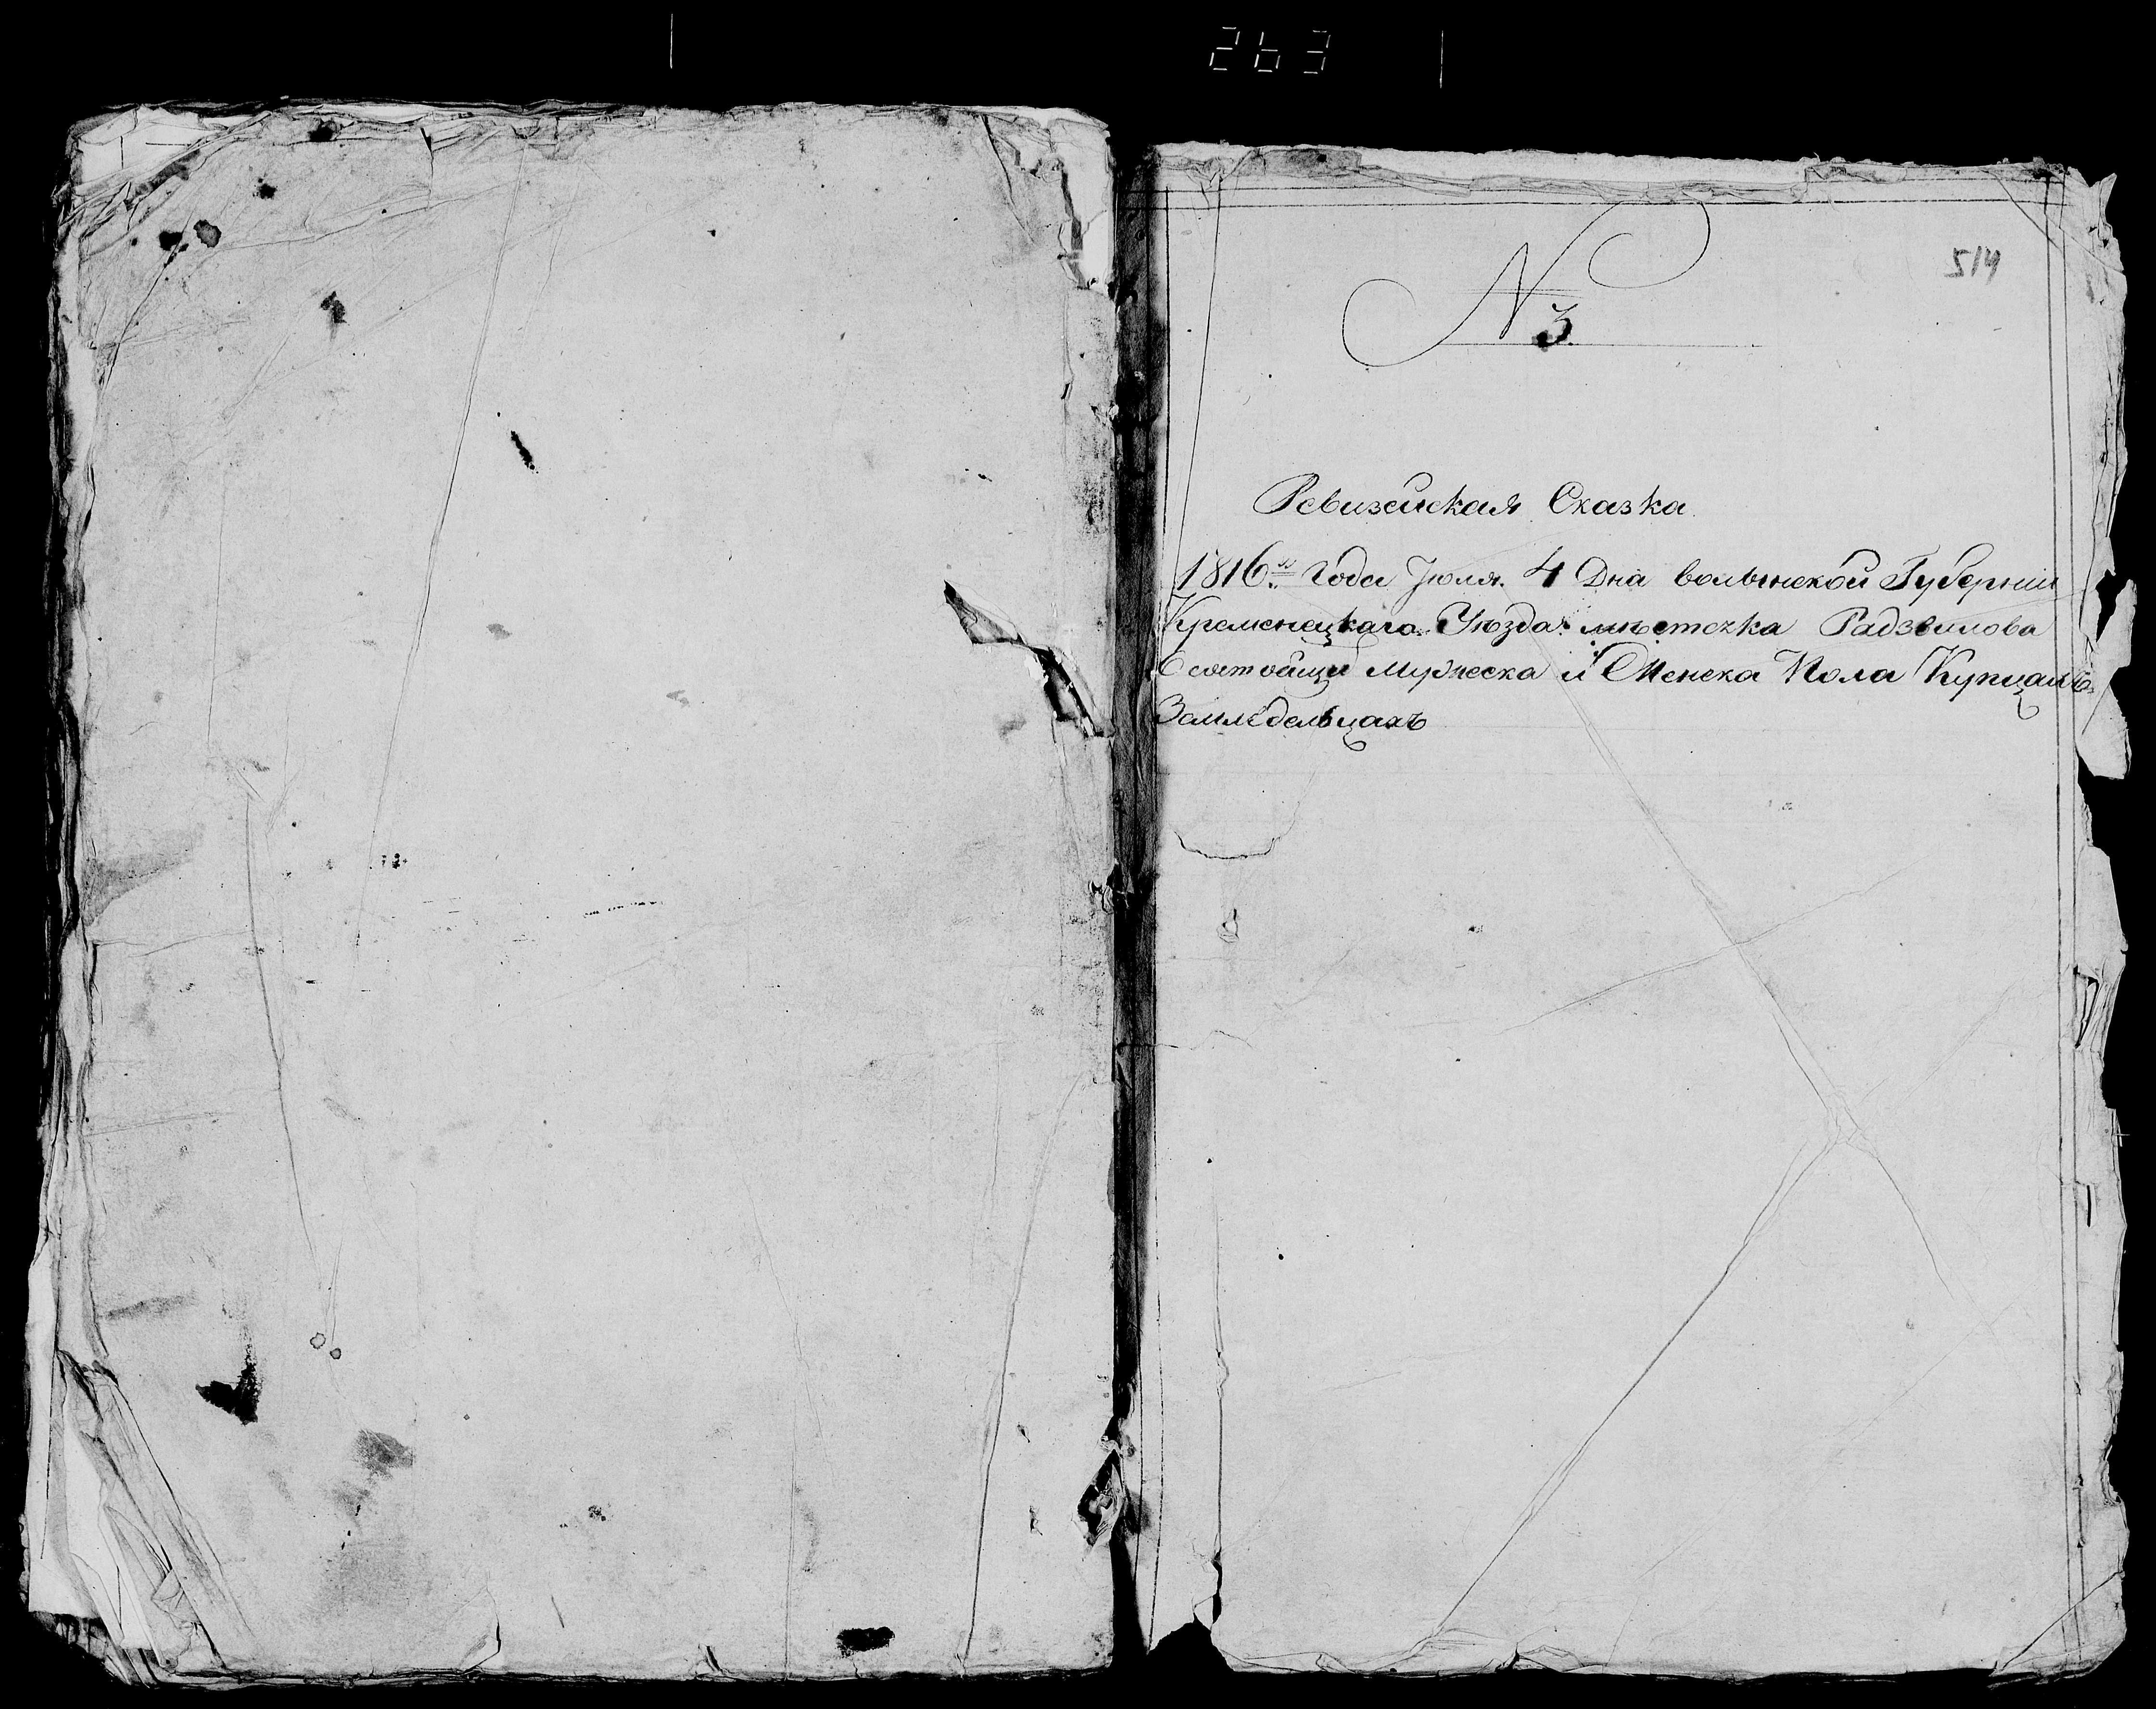 263
514
N 3
Ревизская Сказка
1816го Года Июля 4 Дня волынской Губернии
Кременецкаго Уезда мѣстечка Радзвилова
О состоящи Мужеска и Женска Пола Купцахъ
Земледельцахъ